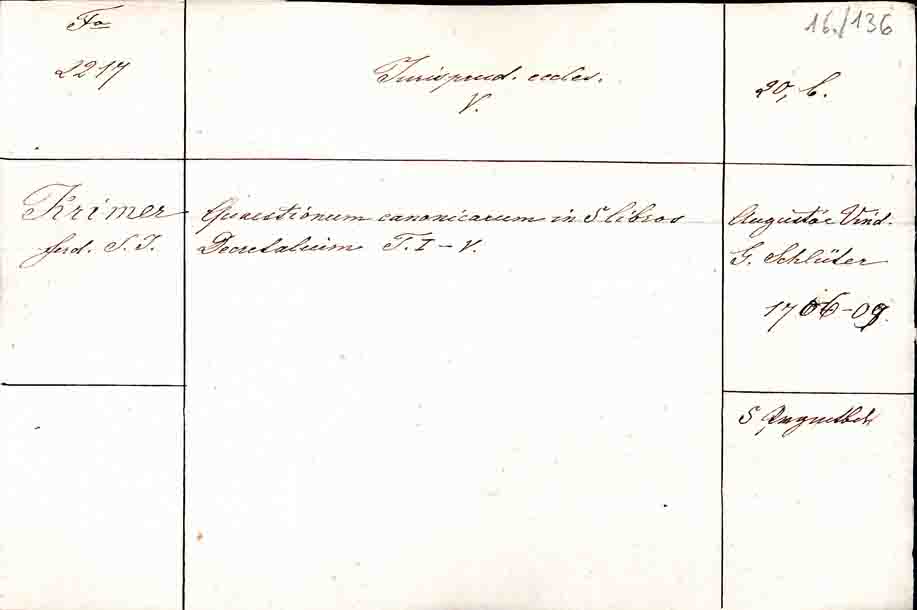 Fa
2217
Jurisprud. eccles.
V.
16./136
20, b.
Krimer
ferd. S. J.
Quaestionum canonicarum in 5 libros
Decretalium T. I – V.
Augustae Vind.
G. Schlüter
1706–09.
5